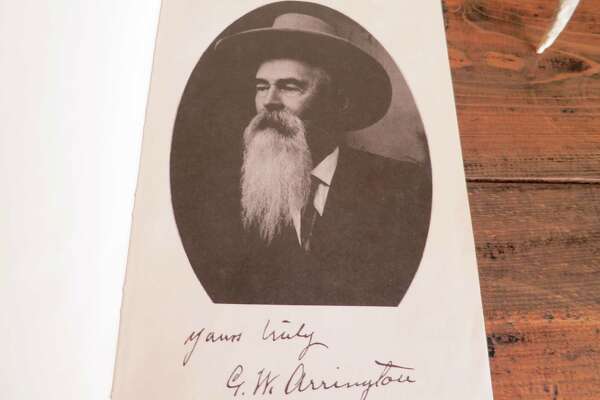 Yours truly
G. W. Arrington